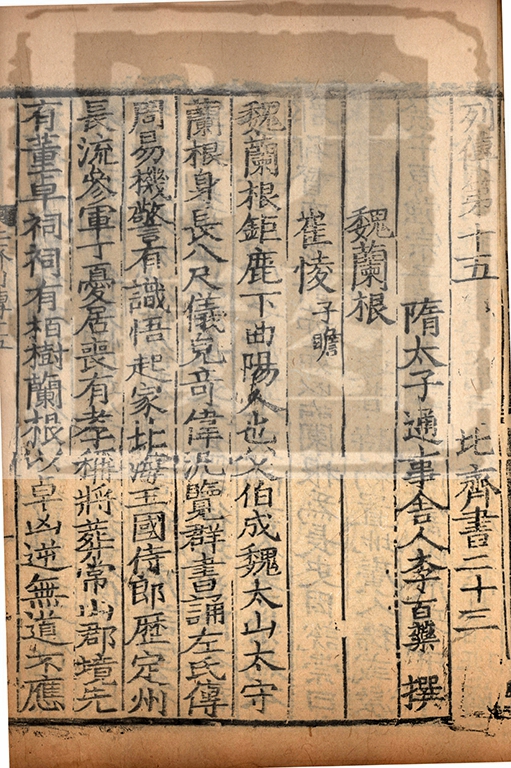 列傳第十五 北齊書二十三
隋太子通事舍人李百藥 撰
魏蘭根
崔㥄子瞻
魏蘭根鉅鹿下曲陽人也父伯成魏太山太守
蘭根身長八尺儀皃奇偉汎覽群書誦左氏傳
周易機警有識悟起家北海王國侍郎歷定州
長流參軍丁憂居喪有孝稱將葬常山郡境先
有董卓祠祠有栢樹蘭根以卓凶逆無道不應